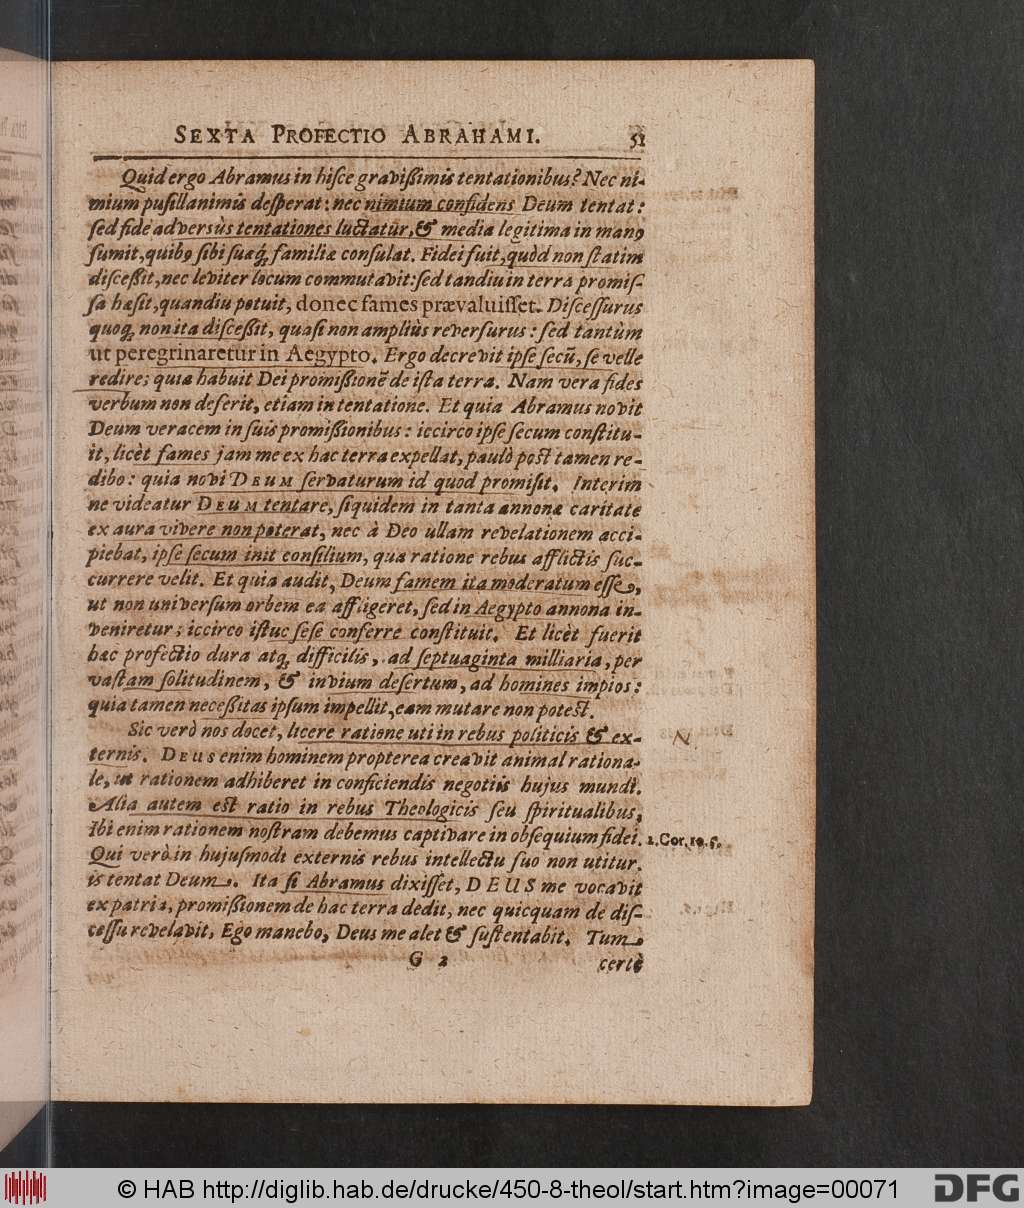 SEXTA PROFECTIO ABRAHAMI. 51
Quid ergo Abramus in hisce gravißimis tentationibus? Nec ni-
mium pusillanimis desperat: nec nimium confidens Deum tentat:
sed fide adversùs tentationes luctatur, & media legitima in manꝰ
sumit, quibꝰ sibi suaq́; familiæ consulat. Fidei fuit, quòd non statim
disceßit, nec leviter locum commutavit: sed tandiu in terra promis-
sa hæsit, quandiu potuit, donec fames prævaluisset. Discessurus
quoq; non ita disceßit, quasi non ampliùs reversurus: sed tantùm
ut peregrinaretur in Aegypto. Ergo decrevit ipse secũ, se velle
redire; quia habuit Dei promißionẽ de ista terra. Nam vera fides
verbum non deserit, etiam in tentatione. Et quia Abramus novit
Deum veracem in suis promißionibus: iccirco ipse secum constitu-
it, licèt fames jam me ex hac terra expellat, paulò pòst tamen re-
dibo: quia novi DEUM servaturum id quod promisit. Interim
ne videatur DEUM tentare, siquidem in tanta annonæ caritate
ex aura vivere non poterat, nec à Deo ullam revelationem acci-
piebat, ipse secum init consilium, qua ratione rebus afflictis suc-
currere velit. Et quia audit, Deum famem ita moderatum esse,
ut non universum orbem ea affligeret, sed in Aegypto annona in-
veniretur; iccirco istuc sese conferre constituit. Et licèt fuerit
hac profectio dura atq; difficilis, ad septuaginta milliaria, per
vastam solitudinem, & invium desertum, ad homines impios:
quia tamen neceßitas ipsum impellit, eam mutare non potest.
Sic verò nos docet, licere ratione uti in rebus politicis & ex-
ternis. DEUS enim hominem propterea creavit animal rationa-
le, ut rationem adhiberet in conficiendis negotiis hujus mundi.
Alia autem est ratio in rebus Theologicis seu spiritualibus,
Ibi enim rationem nostram debemus captivare in obsequium fidei. 2. Cor. 10. 5.
Qui verò in hujusmodi externis rebus intellectu suo non utitur.
is tentat Deum. Ita si Abramus dixisset, DEUS me vocavit
ex patria, promißionem de hac terra dedit, nec quicquam de dis-
cessu revelavit, Ego manebo, Deus me alet & sustentabit. Tum
G 2 certè
© HAB http://diglib.hab.de/drucke/450-8-theol/start.htm?image=00071
DFG